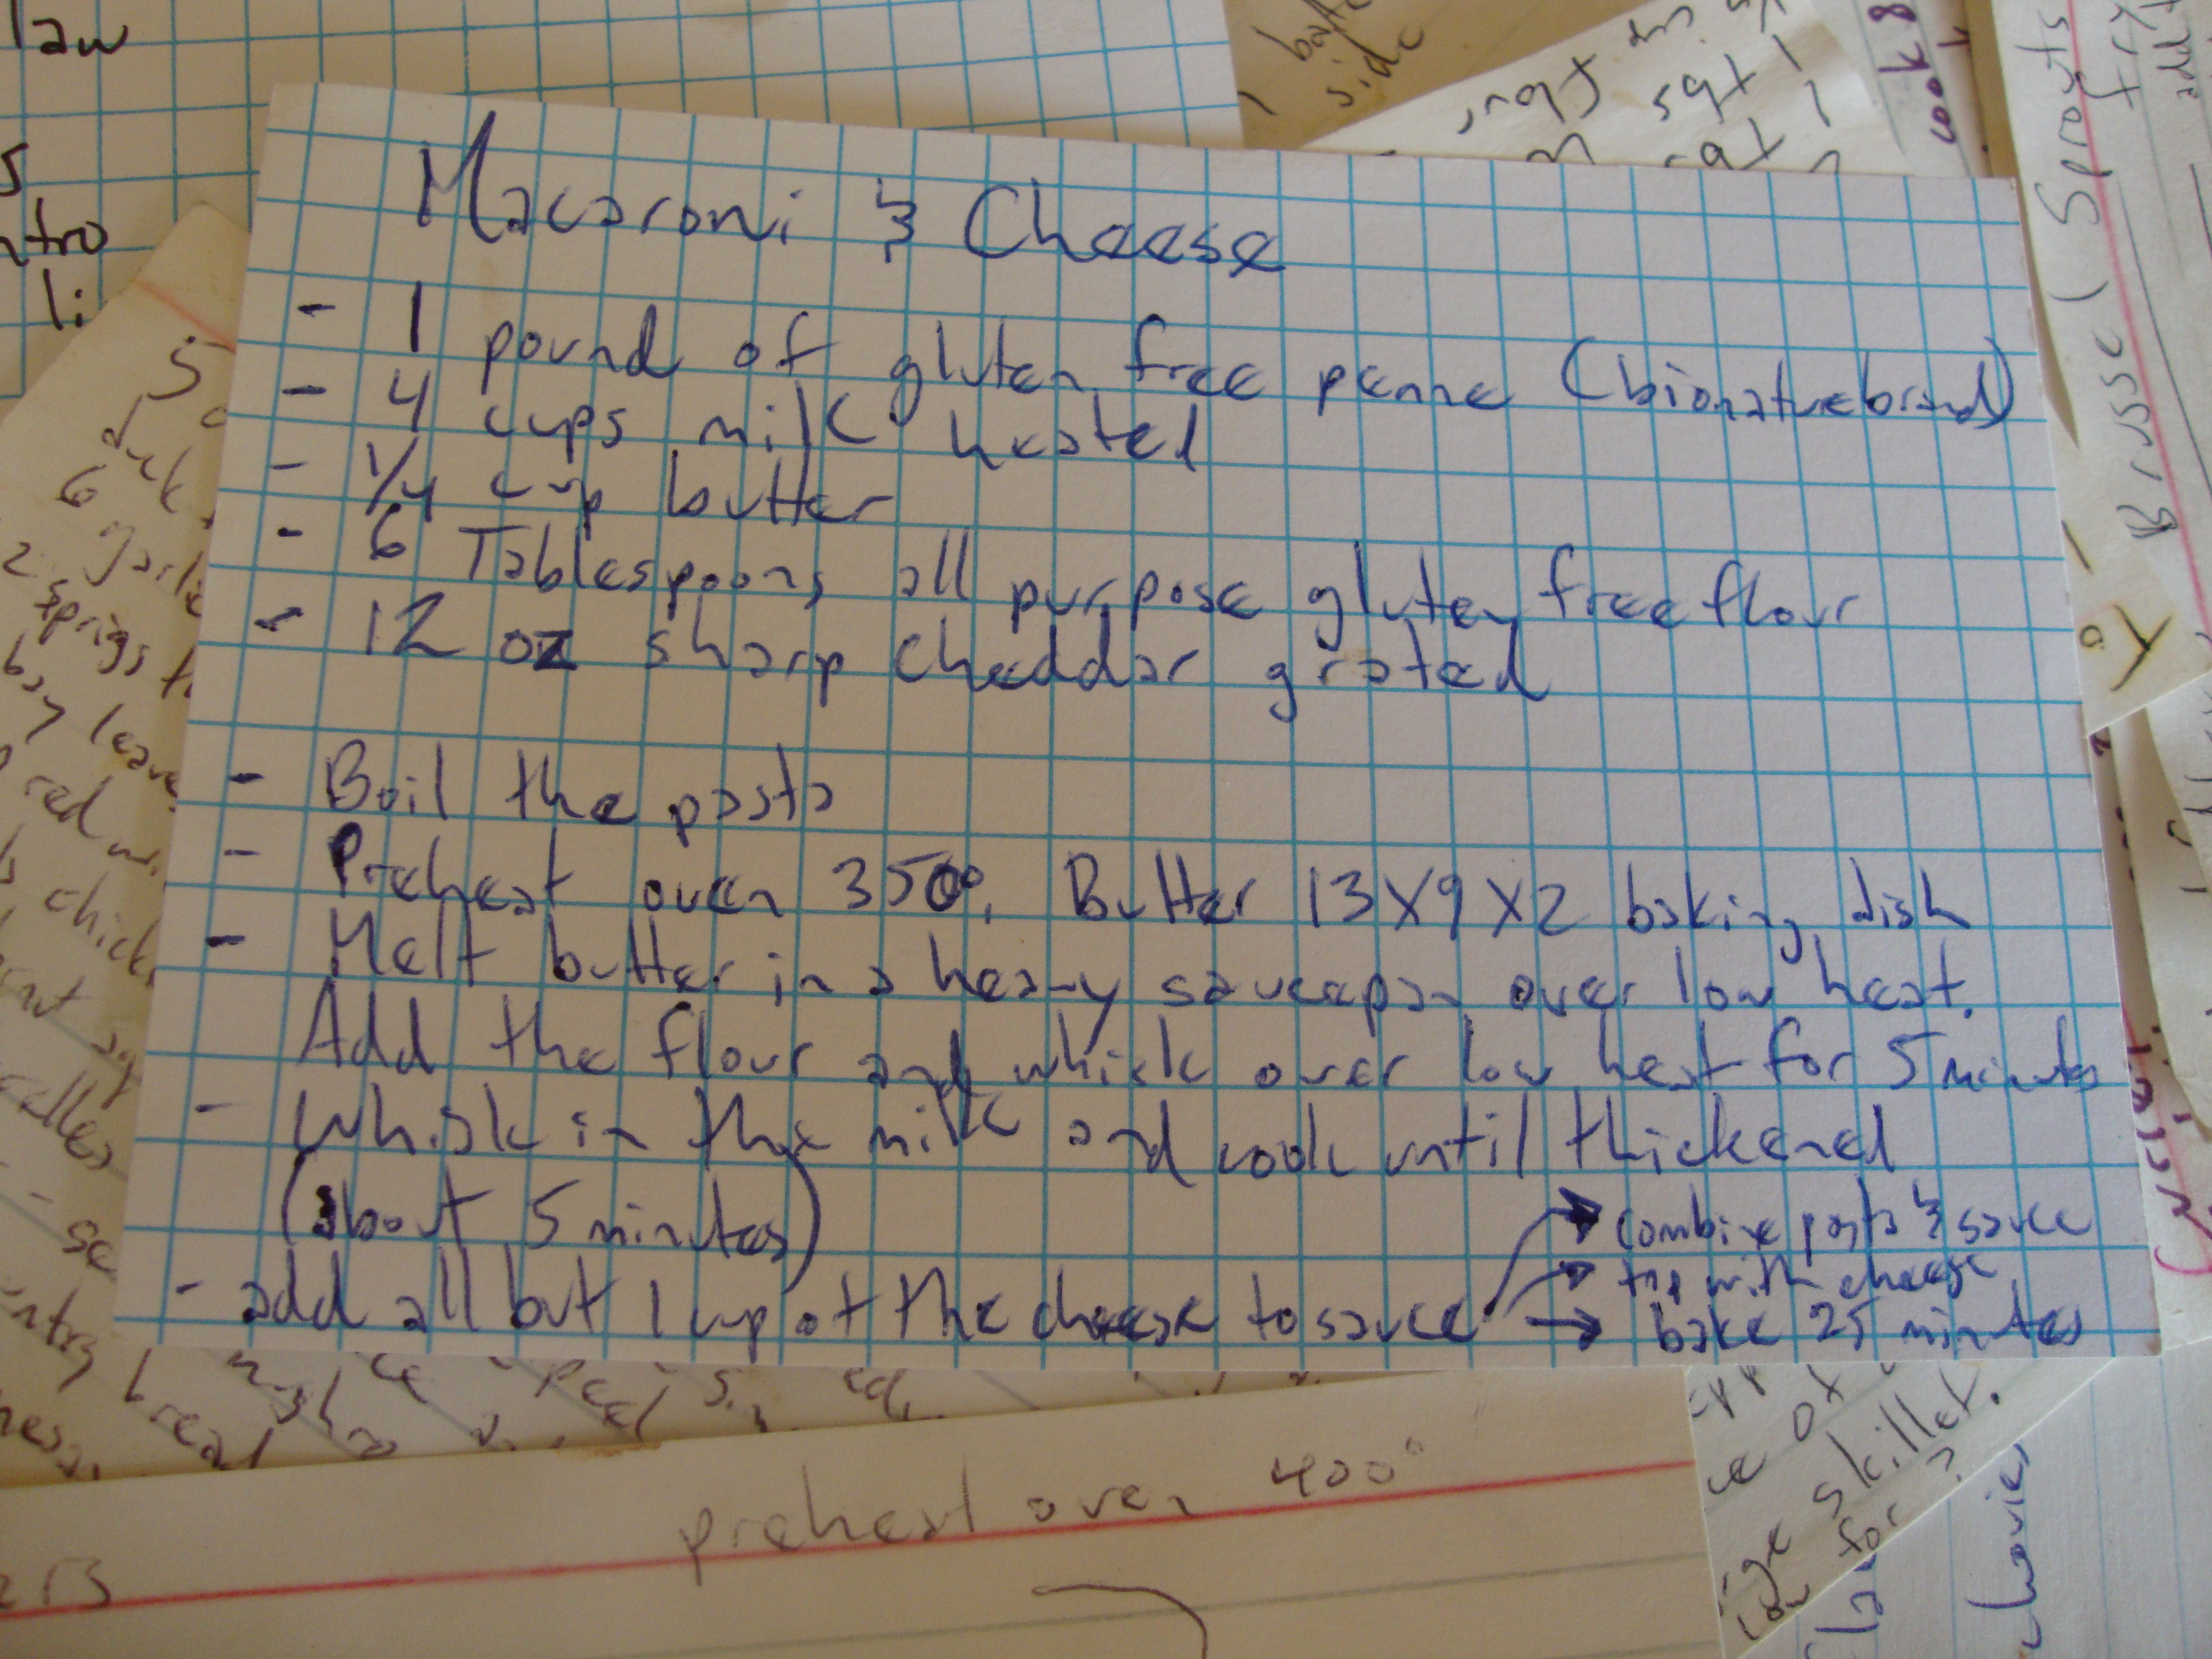 Macaroni & Cheese
- 1 pound of gluten free penne (bionaturebrand)
- 4 cups milk heated
- 1/4 cup butter
- 6 Tablespoons all purpose gluten free flour
- 12 oz sharp cheddar grated
- Boil the pasta
- Preheat oven 350°. Butter 13X9X2 baking dish
- Melt butter in a heavy saucepan over low heat.
Add the flour and whisk over low heat for 5 minutes
- Whisk in the milk and cook until thickened
(about 5 minutes)
- add all but 1 cup of the cheese to sauce
→ combine pasta & sauce
→ top with cheese
→ bake 25 minutes
law
s
ntro
li
5
duck
6 garlic
2 sprigs
bay leave
red
chick
bread
preheat oven 400°
skillet.
for
Brussel Sprouts
fry
add
cook 8
side
1 tbs